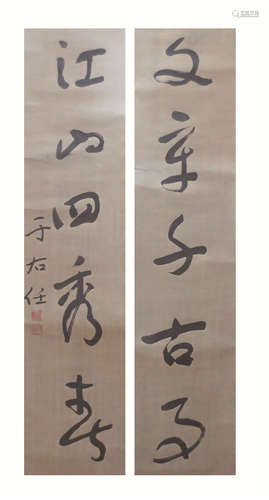 文章千古事
江山四秀春
于右任